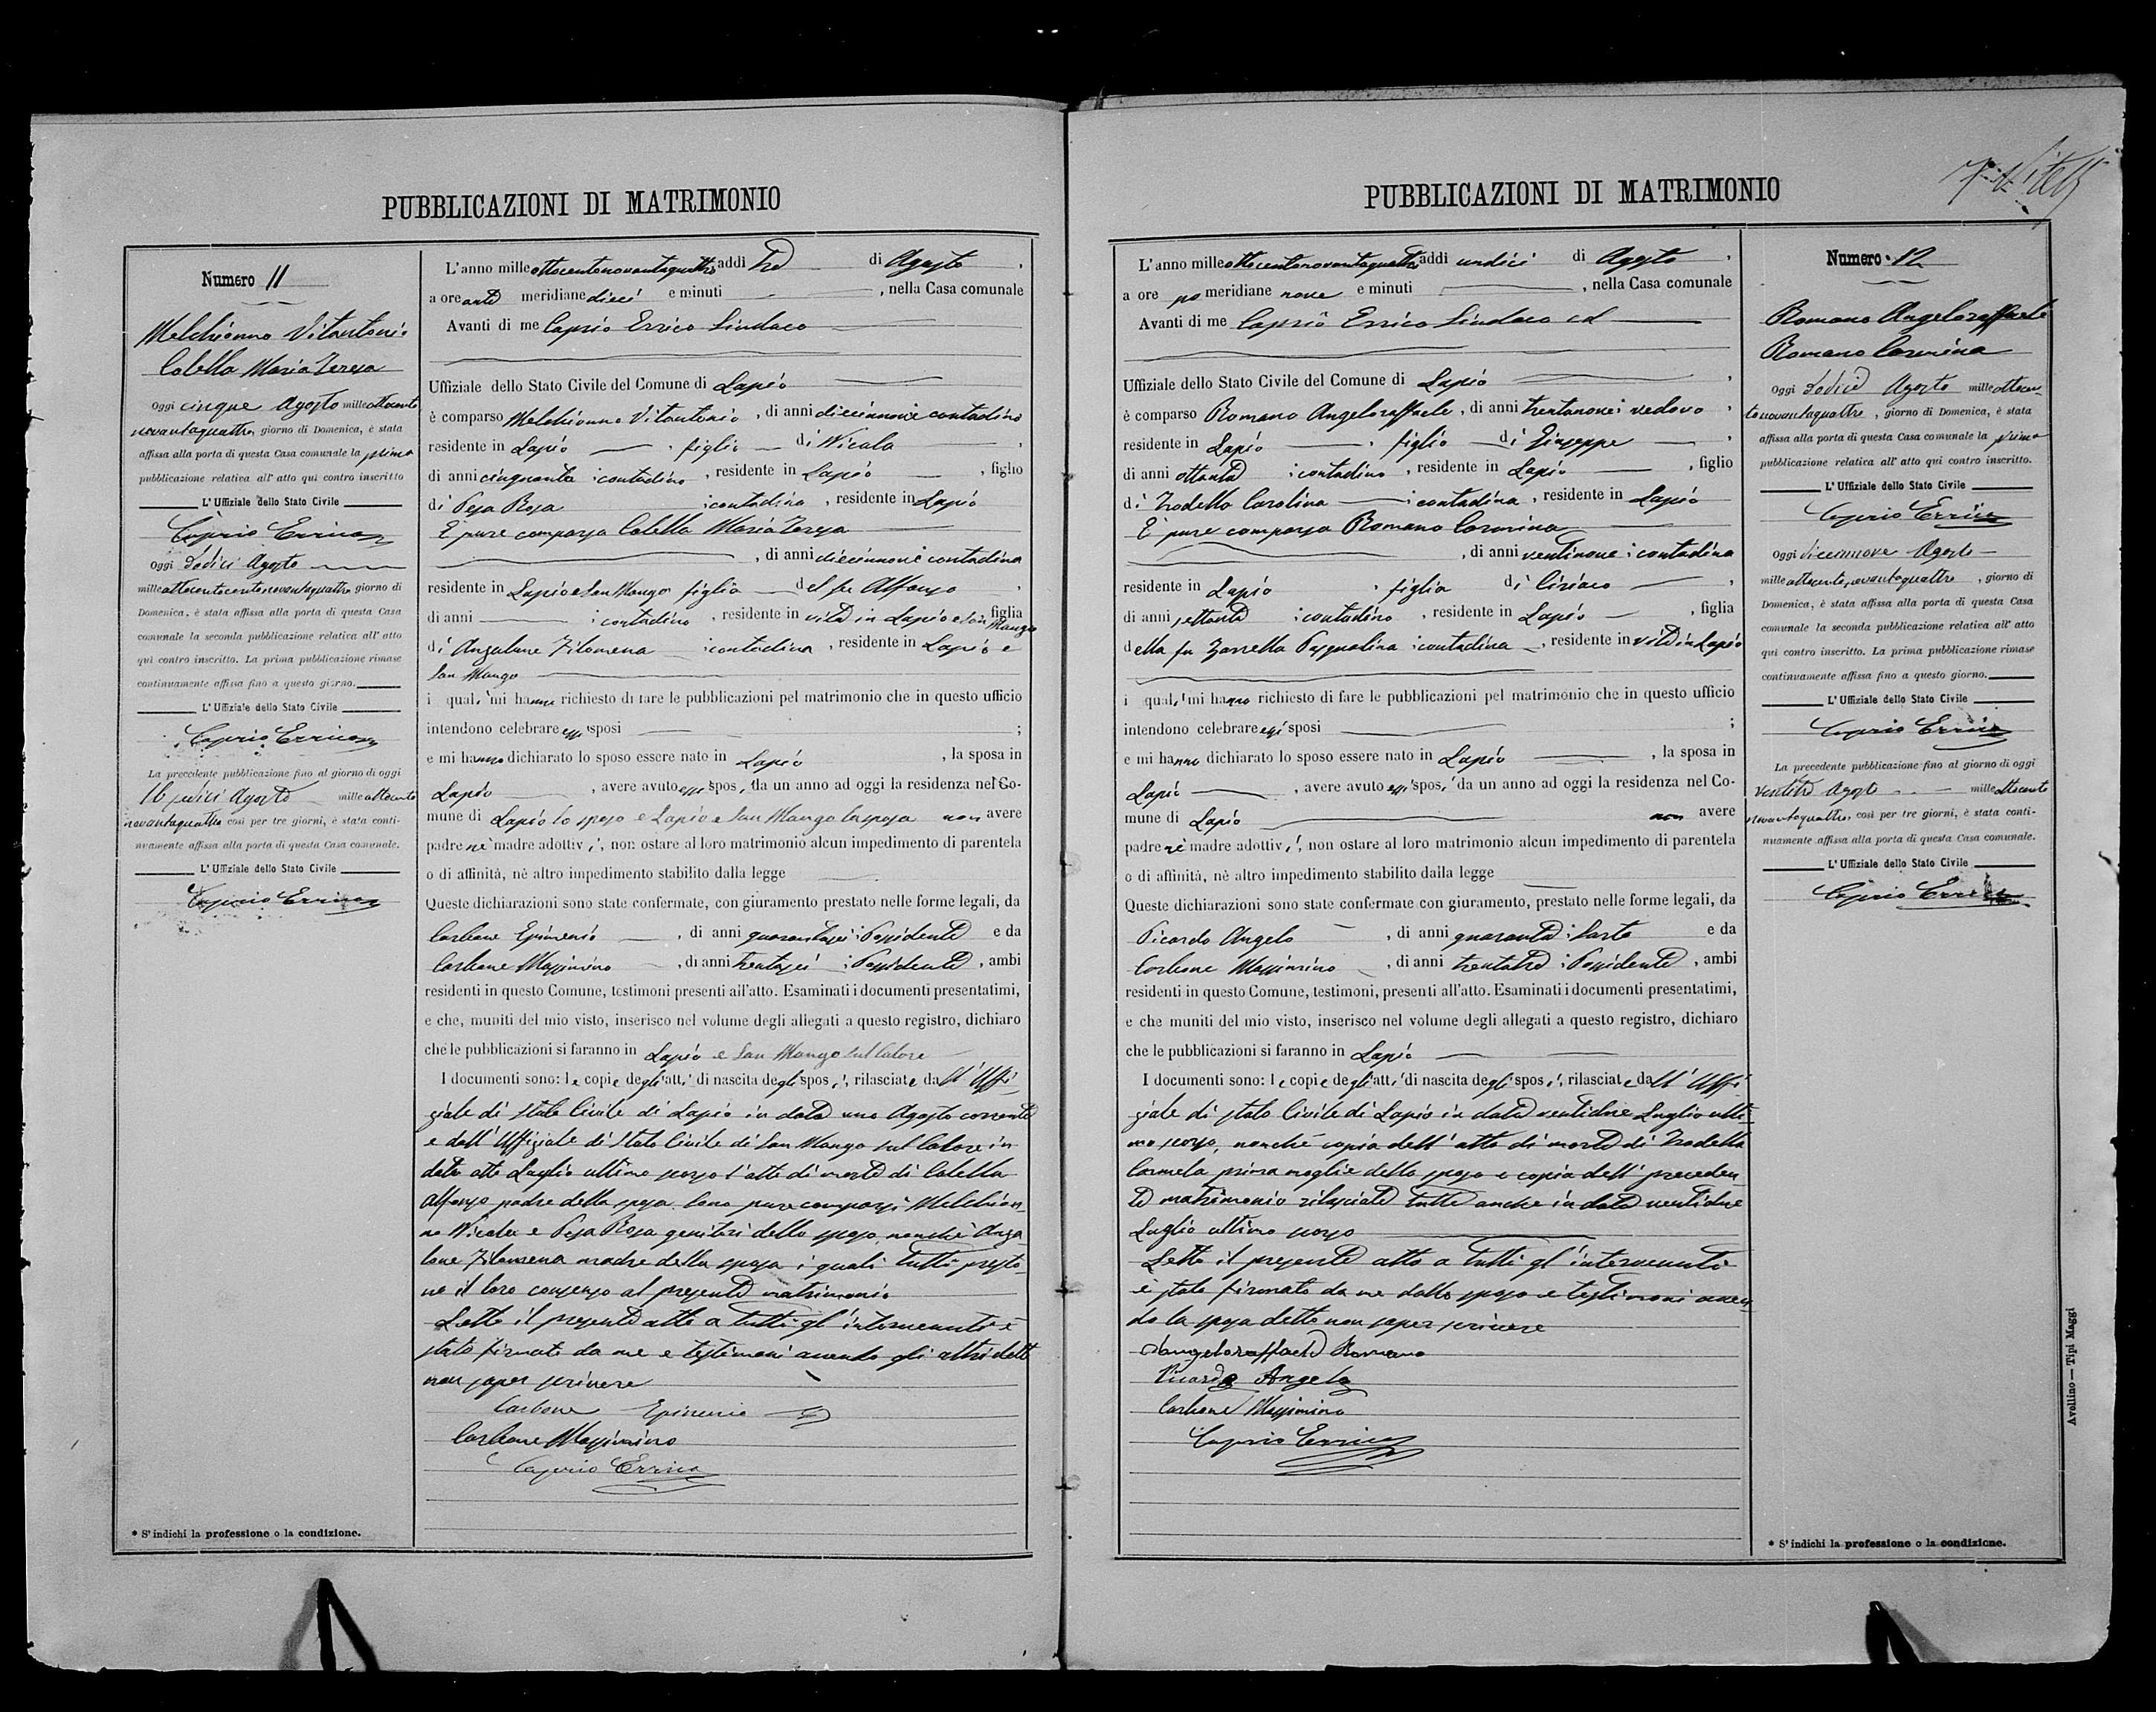 PUBBLICAZIONI DI MATRIMONIO
Numero 11
Melchionno Vitantonio
Colella Maria Teresa
Oggi cinque Agosto mille ottocento
novantaquattro, giorno di Domenica, è stata
affissa alla porta di questa Casa comunale la prima
pubblicazione relativa all' atto quì contro inscritto
L' Uffiziale dello Stato Civile
Caprio Errico
Oggi Dodici Agosto
mille ottocentocentonovantaquattro giorno di
Domenica, è stata affissa alla porta di questa Casa
comunale la seconda pubblicazione relativa all' atto
quì contro inscritto. La prima pubblicazione rimase
continuamente affissa fino a questo giorno.
L' Uffiziale dello Stato Civile
Caprio Errico
La precedente pubblicazione fino al giorno di oggi
16 sedici Agosto mille ottocento
novantaquattro così per tre giorni, è stata conti-
nuamente affissa alla porta di questa Casa comunale.
L' Uffiziale dello Stato Civile
Caprio Errico
* S' indichi la professione o la condizione.
L'anno mille ottocentonovantaquattro addì tre di Agosto,
a ore ante meridiane dieci e minuti , nella Casa comunale
Avanti di me Caprio Errico Sindaco
Uffiziale dello Stato Civile del Comune di Lapio
è comparso Melchionno Vitantonio, di anni diecinnove contadino
residente in Lapio, figlio di Nicola,
di anni cinquanta contadino, residente in Lapio, figlio
di Pesa Rosa contadina, residente in Lapio
È pure comparsa Colella Maria Teresa
, di anni diecinnove contadina
residente in Lapio e San Mango figlia del fu Alfonso,
di anni contadino, residente in vita in Lapio e San Mango figlia
di Angalone Filomena contadina, residente in Lapio e
San Mango
i quali mi hanno richiesto di fare le pubblicazioni pel matrimonio che in questo ufficio
intendono celebrare essi sposi ;
e mi hanno dichiarato lo sposo essere nato in Lapio, la sposa in
Lapio, avere avuto essi sposi da un anno ad oggi la residenza nel Co-
mune di Lapio lo sposo e Lapio e San Mango la sposa non avere
padre nè madre adottivi, non ostare al loro matrimonio alcun impedimento di parentela
o di affinità, nè altro impedimento stabilito dalla legge
Queste dichiarazioni sono state confermate, con giuramento prestato nelle forme legali, da
Carbone Epimenio, di anni quarantasei Possidente e da
Carbone Massimino, di anni trentasei Possidente, ambi
residenti in questo Comune, testimoni presenti all'atto. Esaminati i documenti presentatimi,
e che, muniti del mio visto, inserisco nel volume degli allegati a questo registro, dichiaro
che le pubblicazioni si faranno in Lapio e San Mango sul Calore
I documenti sono: le copie degli atti di nascita degli sposi, rilasciate dall' Uffi-
ziale di Stato Civile di Lapio in data uno Agosto corrente
e dall' Uffiziale di Stato Civile di San Mango sul Calore in
data otto Luglio ultimo scorso l'atto di morte di Colella
Alfonso padre della sposa. Sono pure comparsi Melchion-
no Nicola e Pesa Rosa genitori dello sposo, nonchè Anga-
lone Filomena madre della sposa i quali tutti presta-
no il loro consenso al presente matrimonio
Letto il presente atto a tutti gl' intervenuti è
stato firmato da me e testimoni avendo gli altri detto
non saper scrivere
Carbone Epimenio
Carbone Massimino
Caprio Errico
PUBBLICAZIONI DI MATRIMONIO
L'anno mille ottocentonovantaquattro addì undici di Agosto,
a ore po meridiane nove e minuti , nella Casa comunale
Avanti di me Caprio Errico Sindaco ed
Uffiziale dello Stato Civile del Comune di Lapio,
è comparso Romano Angeloraffaele, di anni trentanove vedovo,
residente in Lapio, figlio di Giuseppe,
di anni ottanta contadino, residente in Lapio, figlio
di Trodella Carolina contadina, residente in Lapio
È pure comparsa Romano Carmina
, di anni ventinove contadina
residente in Lapio, figlia di Ciriaco,
di anni settanta contadino, residente in Lapio, figlia
della fu Zarrella Pasqualina contadina, residente in vita in Lapio
i quali mi hanno richiesto di fare le pubblicazioni pel matrimonio che in questo ufficio
intendono celebrare essi sposi ;
e mi hanno dichiarato lo sposo essere nato in Lapio, la sposa in
Lapio, avere avuto essi sposi da un anno ad oggi la residenza nel Co-
mune di Lapio non avere
padre nè madre adottivi, non ostare al loro matrimonio alcun impedimento di parentela
o di affinità, nè altro impedimento stabilito dalla legge
Queste dichiarazioni sono state confermate con giuramento, prestato nelle forme legali, da
Picardo Angelo, di anni quaranta Sarto e da
Carbone Massimino, di anni trentatre Possidente, ambi
residenti in questo Comune, testimoni, presenti all'atto. Esaminati i documenti presentatimi,
e che muniti del mio visto, inserisco nel volume degli allegati a questo registro, dichiaro
che le pubblicazioni si faranno in Lapio
I documenti sono: le copie degli atti di nascita degli sposi, rilasciate dall' Uffi-
ziale di stato Civile di Lapio in data ventidue Luglio ulti-
mo scorso, nonchè copia dell' atto di morte di Trodella
Carmela prima moglie dello sposo e copia dell' preceden-
te matrimonio rilasciate tutte anche in data ventidue
Luglio ultimo scorso
Letto il presente atto a tutti gl' intervenuti
è stato firmato da me dallo sposo e testimoni aven-
do la sposa detto non saper scrivere
Angeloraffaele Romano
Picardo Angelo
Carbone Massimino
Caprio Errico
Numero 12
Romano Angeloraffaele
Romano Carmina
Oggi Dodici Agosto mille ottocen-
tonovantaquattro, giorno di Domenica, è stata
affissa alla porta di questa Casa comunale la prima
pubblicazione relativa all' atto quì contro inscritto.
L' Uffiziale dello Stato Civile
Caprio Errico
Oggi diecinnove Agosto
mille ottocentonovantaquattro, giorno di
Domenica, è stata affissa alla porta di questa Casa
comunale la seconda pubblicazione relativa all' atto
quì contro inscritto. La prima pubblicazione rimase
continuamente affissa fino a questo giorno.
L' Uffiziale dello Stato Civile
Caprio Errico
La precedente pubblicazione fino al giorno di oggi
ventitre Agosto mille ottocento
novantaquattro, così per tre giorni, è stata conti-
nuamente affissa alla porta di questa Casa comunale.
L' Uffiziale dello Stato Civile
Caprio Errico
* S' indichi la professione o la condizione.
Avellino — Tipi Maggi